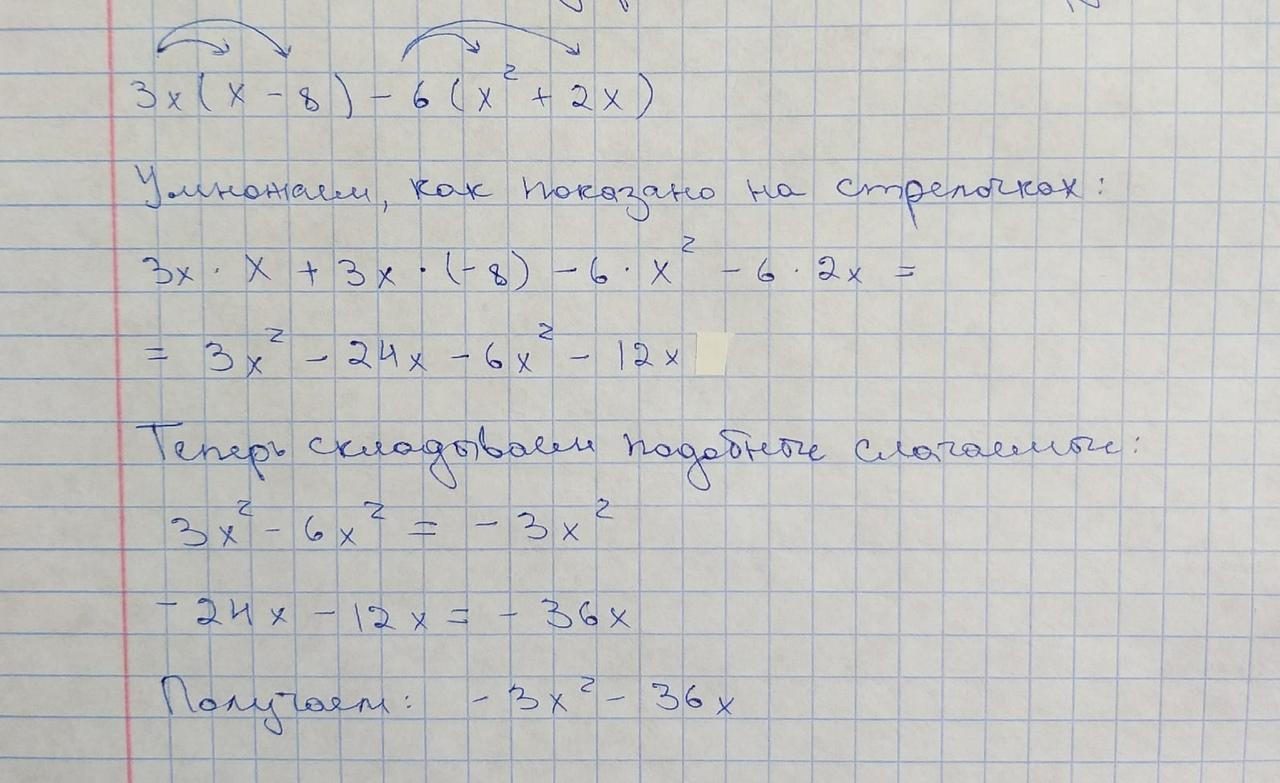 3x(x - 8) - 6(x² + 2x)
Умножаем, как показано на стрелочках:
3x · x + 3x · (-8) - 6 · x² - 6 · 2x =
= 3x² - 24x - 6x² - 12x
Теперь складываем подобные слагаемые:
3x² - 6x² = - 3x²
- 24x - 12x = - 36x
Получаем: - 3x² - 36x